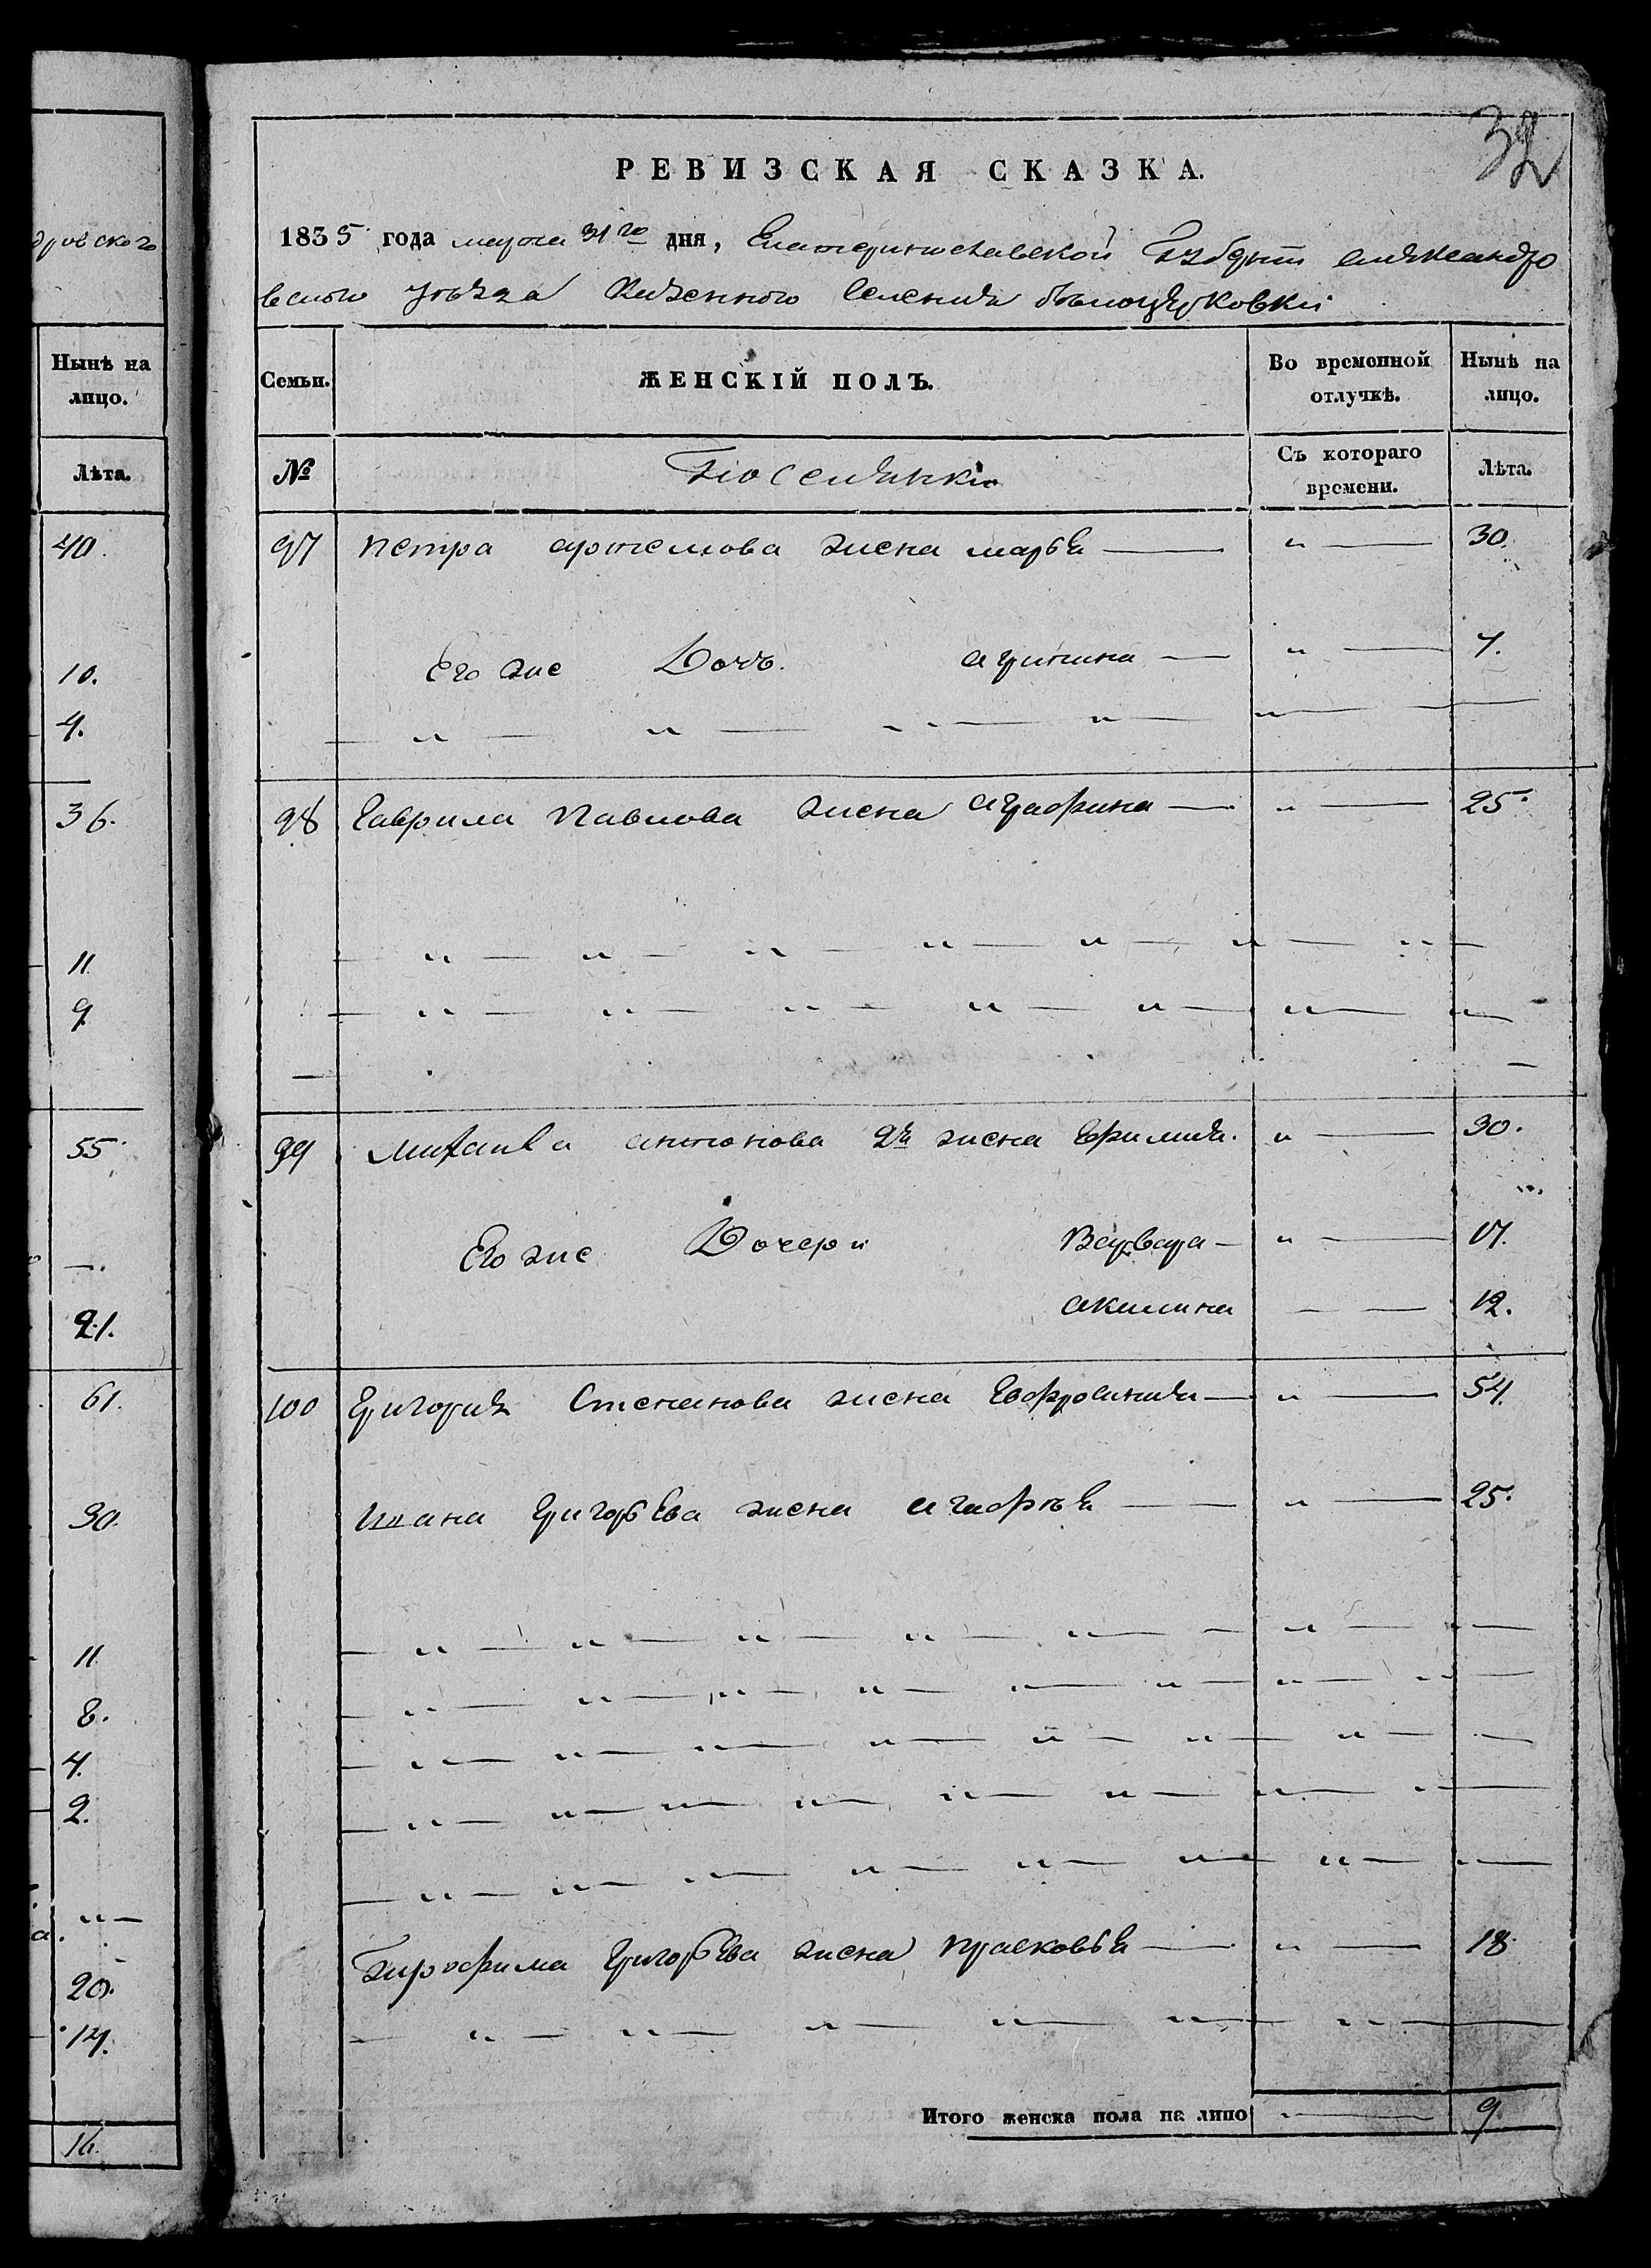 дровского
Нынѣ на
лицо.
Лѣта.
40.
10.
4.
36.
11.
9.
55.
21.
61.
30.
11.
8.
4.
2.
20.
14.
16.
32
РЕВИЗСКАЯ СКАЗКА.
1835 года марта 31го дня, Екатеринославской Губерніи александро
вского уѣзда Казенного селенія бѣлоцерковки
Семьи.
ЖЕНСКІЙ ПОЛЪ.
Во временной
отлучкѣ.
Нынѣ на
лицо.
№
Поселянки
Съ котораго
времени.
Лѣта.
97 петра артемова жена марья — „ — 30.
Его же Дочь. агрипина — „ — 7.
98 Гаврила Павлова жена аграфина — „ — 25.
99 Михаила антонова 2я жена Ефимия. „ — 30.
Его же Дочери Варвара — „ — 17.
акилина — — 12.
100 Григория Степанова жена Евфросиния — „ — 54.
Ивана Григорьева жена агафья — „ — 25.
Трофима Григорьева жена прасковья — „ — 18.
Итого женска пола на лицо „ — 9.